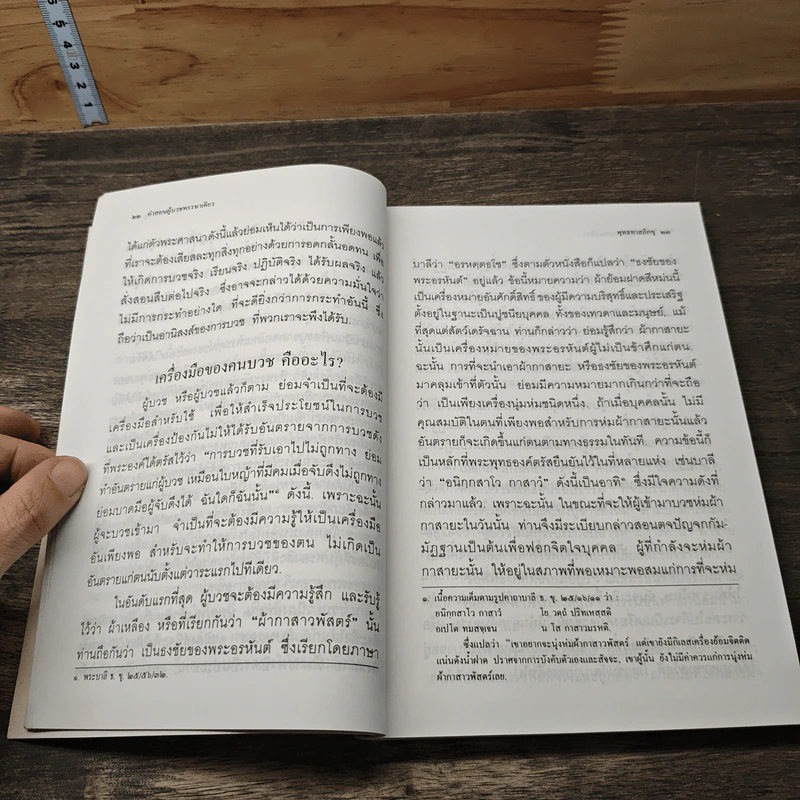 ๒๒ คำสอนผู้บวชพรรษาเดียว
ได้แก่ตัวพระศาสนา ดังนี้แล้วย่อมเห็นได้ว่าเป็นการเพียงพอแล้ว
ที่เราจะต้องเสียสละทุกสิ่งทุกอย่างด้วยการอดกลั้นอดทน เพื่อ
ให้เกิดการบวชจริง เรียนจริง ปฏิบัติจริง ได้รับผลจริง แล้ว
สั่งสอนสืบต่อไปจริง ซึ่งอาจจะกล่าวได้ด้วยความมั่นใจว่า
ไม่มีการกระทำอย่างใด ที่จะดียิ่งกว่าการกระทำอันนี้ ซึ่ง
ถือว่าเป็นอานิสงส์ของการบวช ที่พวกเราจะพึงได้รับ.
เครื่องมือของคนบวช คืออะไร?
ผู้บวช หรือผู้บวชแล้วก็ตาม ย่อมจำเป็นที่จะต้องมี
เครื่องมือสำหรับใช้ เพื่อให้สำเร็จประโยชน์ในการบวช
และเป็นเครื่องป้องกันไม่ให้ได้รับอันตรายจากการบวชดัง
ที่พระองค์ได้ตรัสไว้ว่า “การบวชที่รับเอาไปไม่ถูกทาง ย่อม
ทำอันตรายแก่ผู้บวช เหมือนใบหญ้าที่มีคมเมื่อจับดึงไม่ถูกทาง
ย่อมบาดมือผู้จับดึงได้ ฉันใดก็ฉันนั้น”๑ ดังนี้. เพราะฉะนั้น
ผู้จะบวชเข้ามา จำเป็นที่จะต้องมีความรู้ให้เป็นเครื่องมือ
อันเพียงพอ สำหรับจะทำให้การบวชของตน ไม่เกิดเป็น
อันตรายแก่ตนนับตั้งแต่วาระแรกไปทีเดียว.
ในอันดับแรกที่สุด ผู้บวชจะต้องมีความรู้สึก และรับรู้
ไว้ว่า ผ้าเหลือง หรือที่เรียกกันว่า “ผ้ากาสาวพัสตร์” นั้น
ท่านถือกันว่า เป็นธงชัยของพระอรหันต์ ซึ่งเรียกโดยภาษา
๑. พระบาลี ธ. ขุ. ๒๕/๕๖/๓๒.
พุทธทาสภิกขุ ๒๓
บาลีว่า “อรหตฺตธโช” ซึ่งตามตัวหนังสือก็แปลว่า “ธงชัยของ
พระอรหันต์” อยู่แล้ว ข้อนี้หมายความว่า ผ้าย้อมฝาดสีหม่นนี้
เป็นเครื่องหมายอันศักดิ์สิทธิ์ ของผู้มีความบริสุทธิ์และประเสริฐ
ตั้งอยู่ในฐานะเป็นปูชนียบุคคล ทั้งของเทวดาและมนุษย์, แม้
ที่สุดแต่สัตว์เดรัจฉาน ท่านก็กล่าวว่า ย่อมรู้สึกว่า ผ้ากาสายะ
นั้นเป็นเครื่องหมายของพระอรหันต์ผู้ไม่เป็นข้าศึกแก่ตน.
ฉะนั้น การที่จะนำเอาผ้ากาสายะ หรือธงชัยของพระอรหันต์
มาคลุมเข้าที่ตัวนั้น ย่อมมีความหมายมากเกินกว่าที่จะถือ
ว่า เป็นเพียงเครื่องนุ่งห่มชนิดหนึ่ง. ถ้าเมื่อบุคคลนั้น ไม่มี
คุณสมบัติในตนที่เพียงพอสำหรับการห่มผ้ากาสายะนั้นแล้ว
อันตรายก็จะเกิดขึ้นแก่ตนตามทางธรรมในทันที. ความข้อนี้ก็
เป็นหลักที่พระพุทธองค์ตรัสยืนยันไว้ในที่หลายแห่ง เช่นบาลี
ว่า “อนิกฺกสาโว กาสาวํ” ดังนี้เป็นอาทิ๑ ซึ่งมีใจความดังที่
กล่าวมาแล้ว. เพราะฉะนั้น ในขณะที่จะให้ผู้เข้ามาบวชห่มผ้า
กาสายะในวันนั้น ท่านจึงมีระเบียบกล่าวสอนตจปัญจกกัม-
มัฏฐานเป็นต้นเพื่อฟอกจิตใจบุคคล ผู้ที่กำลังจะห่มผ้า
กาสายะนั้น ให้อยู่ในสภาพที่พอเหมาะพอสมแก่การที่จะห่ม
๑. เนื้อความเต็มตามรูปคาถาบาลี ธ. ขุ. ๒๕/๑๖/๑๑ ว่า :
อนิกฺกสาโว กาสาวํ โย วตฺถํ ปริทเหสฺสติ
อเปโต ทมสจฺเจน น โส กาสาวมรหติ.
ซึ่งแปลว่า “เขาอยากจะนุ่งห่มผ้ากาสาวพัสตร์ แต่เขายังมีกิเลสเครื่องย้อมจิตติด
แน่นดังน้ำฝาด ปราศจากการบังคับตัวเองและสัจจะ, เขาผู้นั้น ยังไม่มีค่าควรแก่การนุ่งห่ม
ผ้ากาสาวพัสตร์เลย.
5
5
4
3
2
1